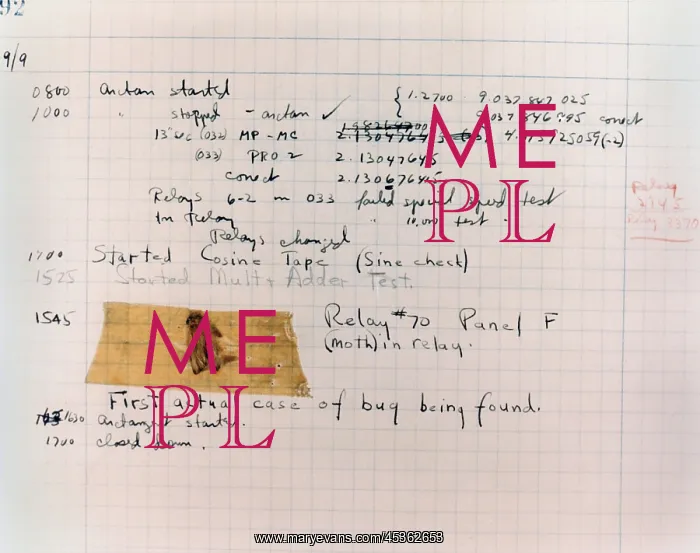 92
9/9
0800 arctan started
1000 " stopped - arctan ✓ { 1.2700 9.037 847 025
037 846 995 correct
13"uc (032) MP - MC
(033) PRO 2 2.130476415
correct 2.130676415
Relays 6-2 in 033 failed special speed test
in relay " 10.000 test .
Relay
2145
Relay 3370
Relays changed
1700 Started Cosine Tape (Sine check)
1525 Started Mult + Adder Test.
1545 Relay #70 Panel F
(moth) in relay.
First actual case of bug being found.
1630 arctangent started.
1700 closed down.
ME
PL
ME
PL
www.maryevans.com/45362653